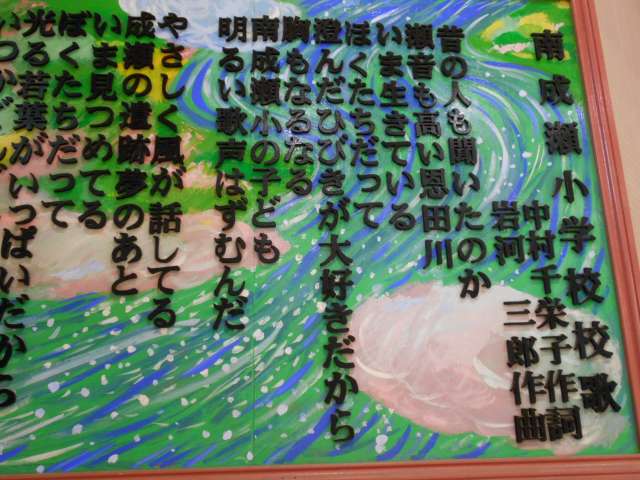 南成瀬小学校校歌
中村千栄子作詞
岩河三郎作曲
昔の人も聞いたのか
瀬音も高い恩田川
いま生きている
ぼくたちだって
澄んだひびきが大好きだから
胸もなるなる
南成瀬小の子ども
明るい歌声はずむんだ
やさしく風が話してる
成瀬の遺跡夢のあと
いま見つめてる
ぼくたちだって
光る若葉がいっぱいだから